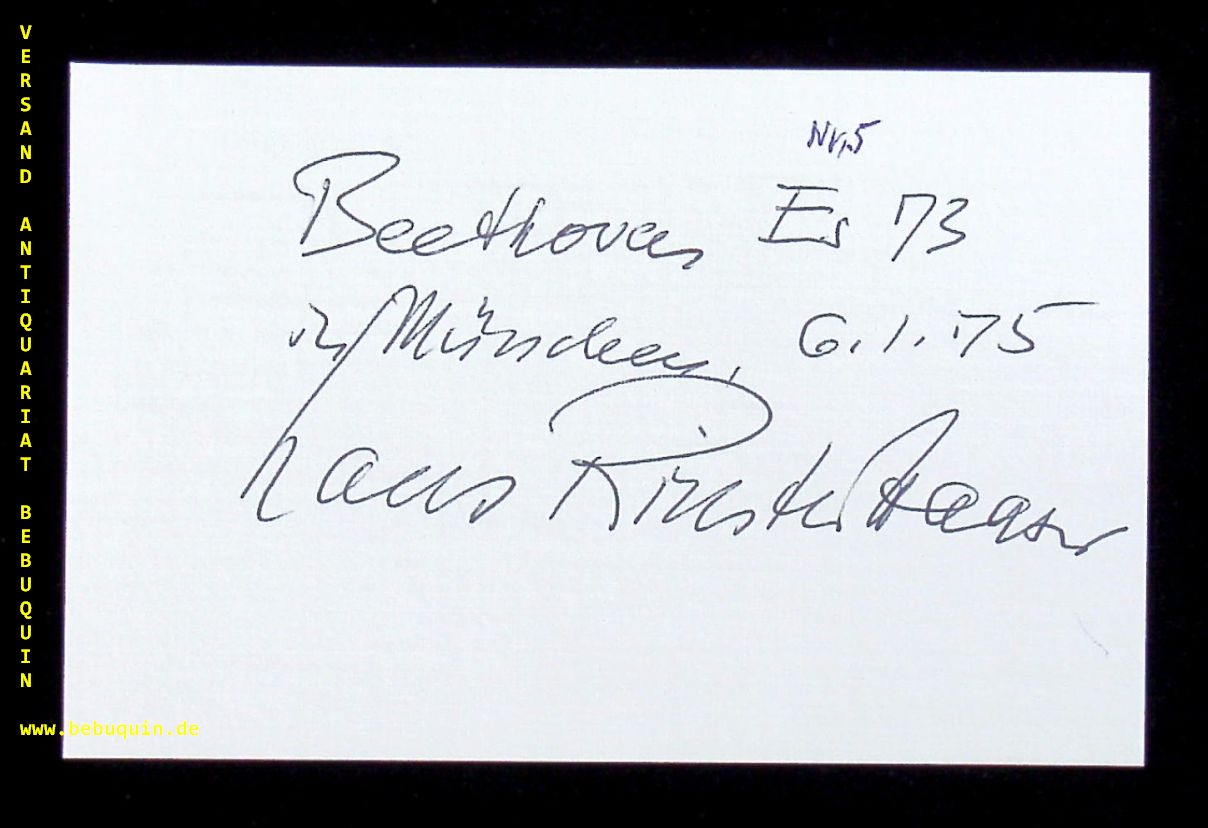 VERSAND ANTIQUARIAT BEBUQUIN
Nr. 5
Beethoven Es 73
in München, 6.1.75
Hans Richter Haaser
www.bebuquin.de